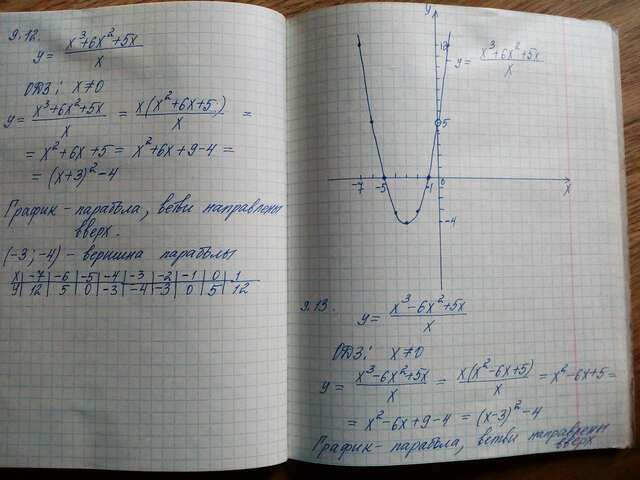 9.12.
y = x³+6x²+5x / x
ОДЗ: x≠0
y = x³+6x²+5x / x = x(x²+6x+5) / x =
= x²+6x+5 = x²+6x+9-4 =
= (x+3)²-4
График - парабола, ветви направлены
вверх.
(-3; -4) - вершина параболы
x | -7 | -6 | -5 | -4 | -3 | -2 | -1 | 0 | 1
y | 12 | 5 | 0 | -3 | -4 | -3 | 0 | 5 | 12
y
12
y = x³+6x²+5x / x
5
-7 -5 -1 0 x
-4
9.13.
y = x³-6x²+5x / x
ОДЗ: x≠0
y = x³-6x²+5x / x = x(x²-6x+5) / x = x²-6x+5 =
= x²-6x+9-4 = (x-3)²-4
График - парабола, ветви направлены
вверх